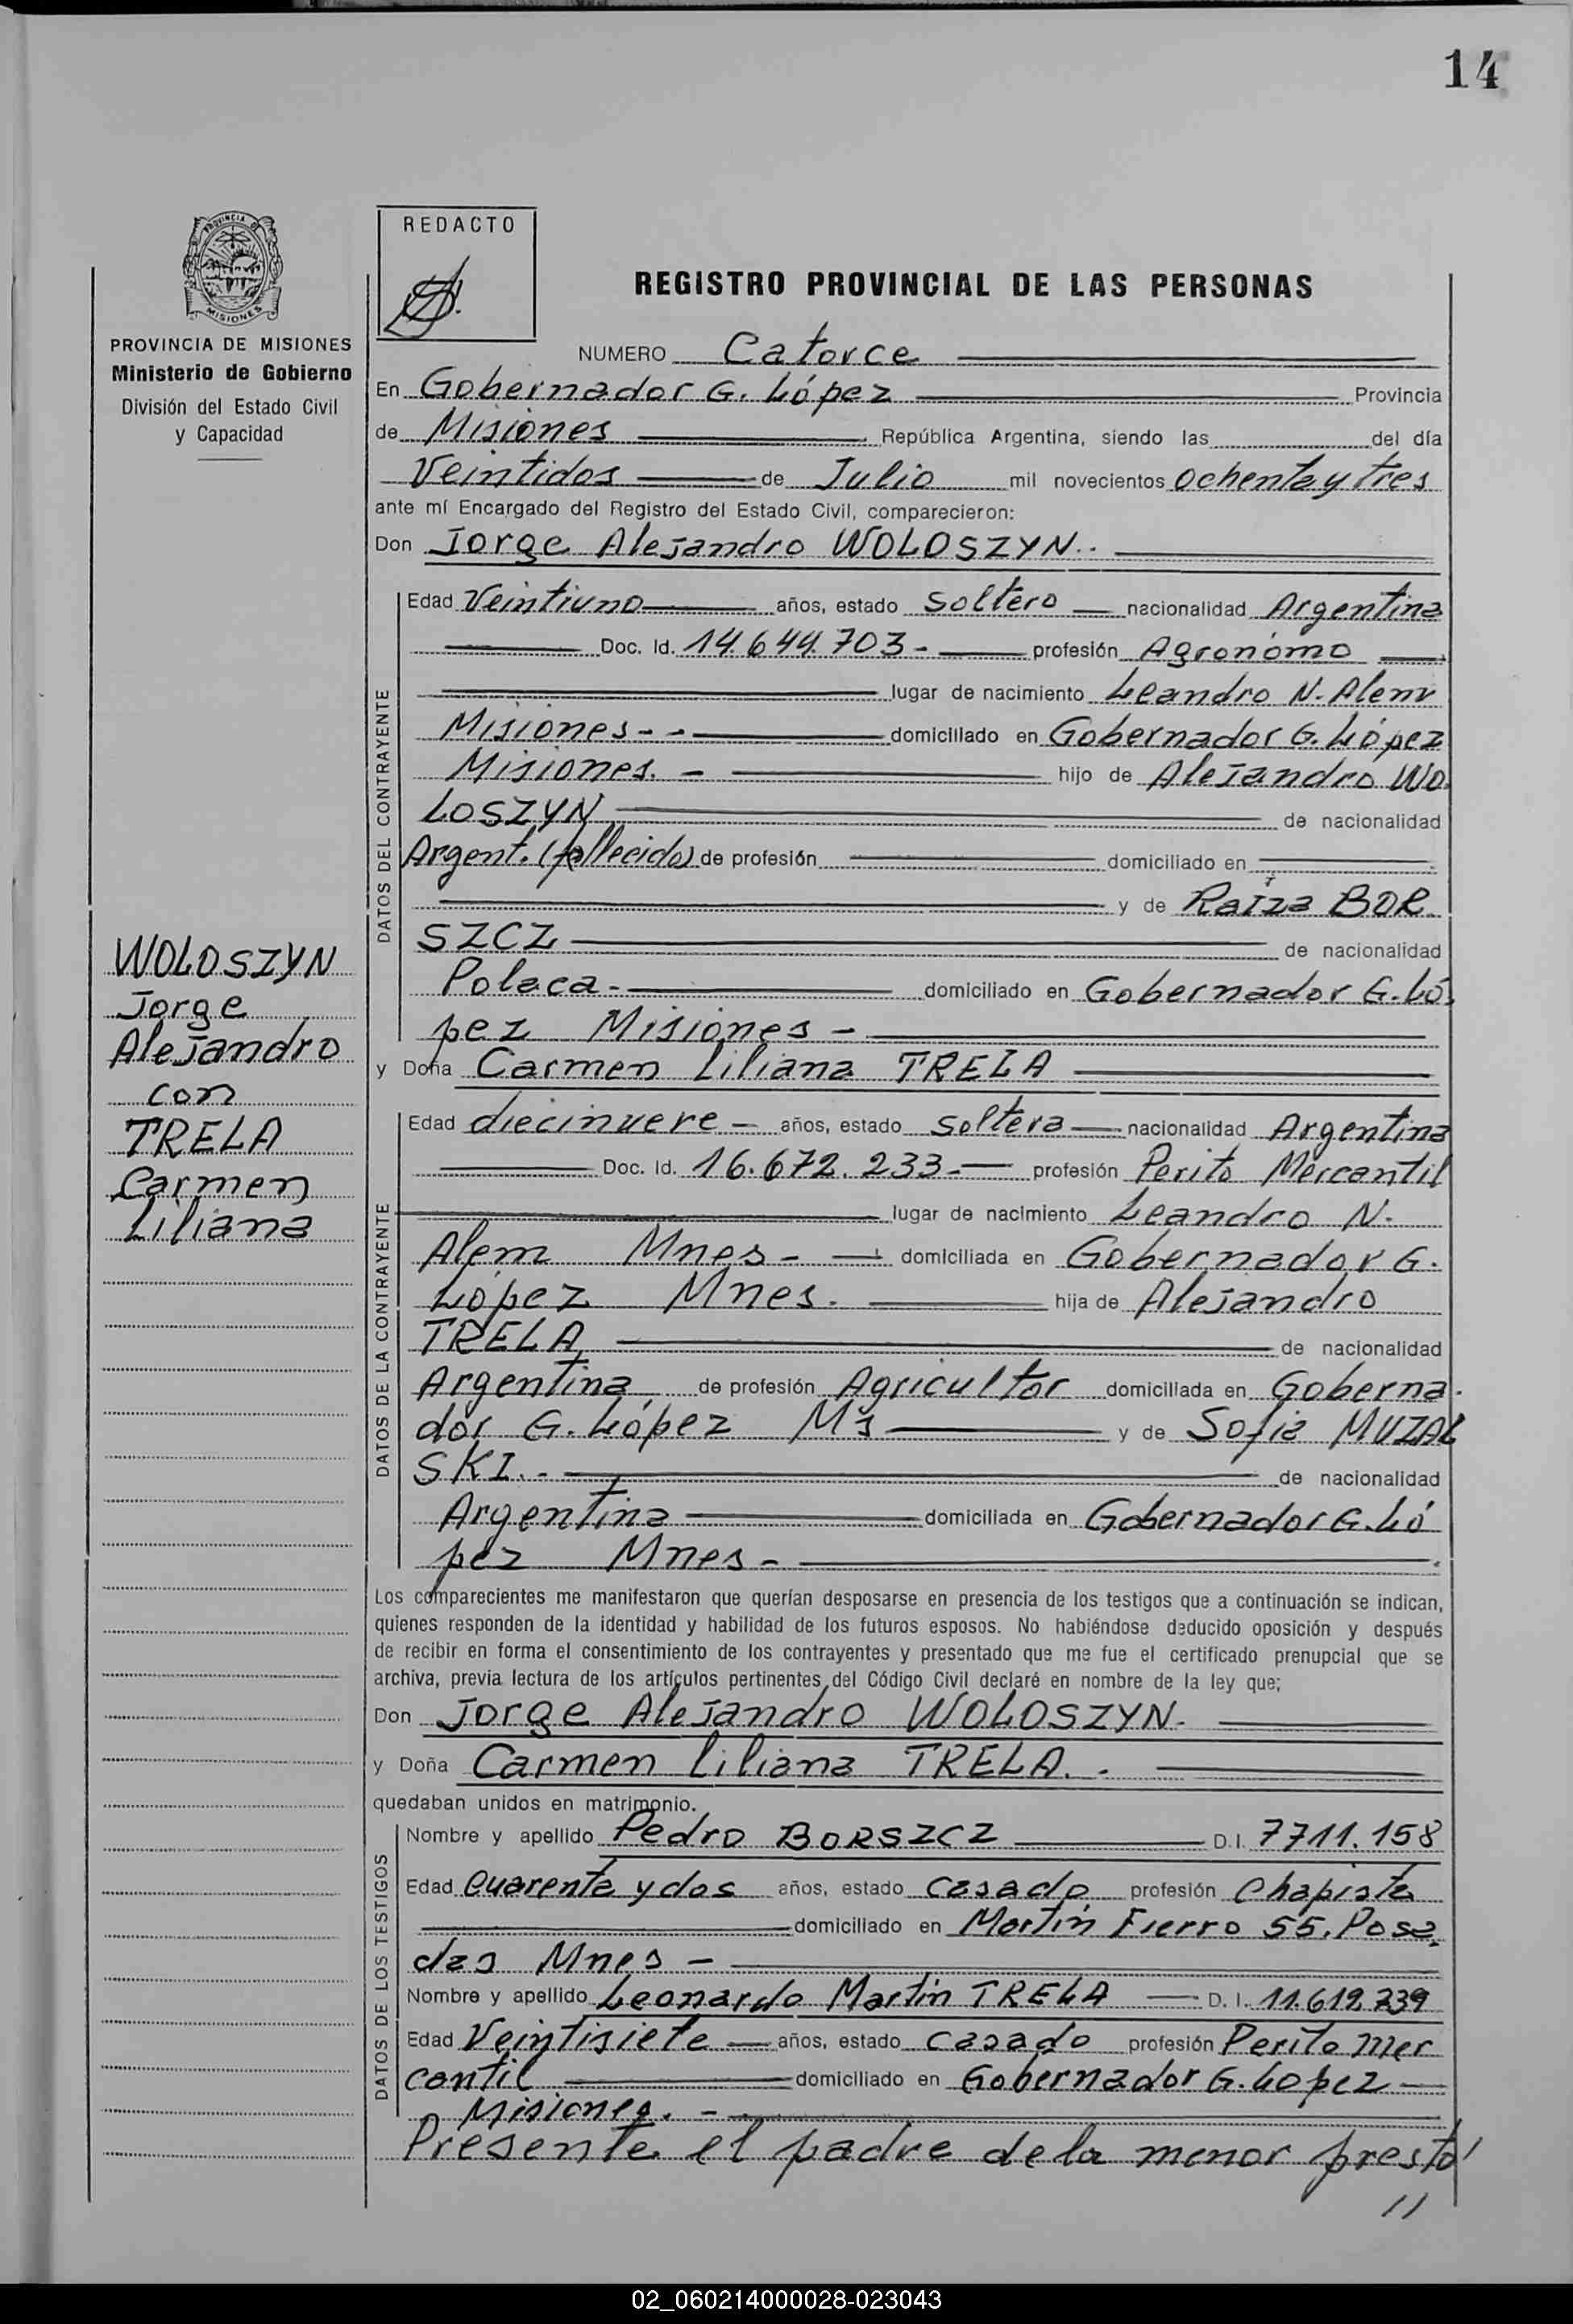 14
PROVINCIA DE
MISIONES
PROVINCIA DE MISIONES
Ministerio de Gobierno
División del Estado Civil
y Capacidad
REDACTO
REGISTRO PROVINCIAL DE LAS PERSONAS
NUMERO Catorce
En Gobernador G. López Provincia
de Misiones República Argentina, siendo las del día
Veintidos de Julio mil novecientos ochenta y tres
ante mí Encargado del Registro del Estado Civil, comparecieron:
Don Jorge Alejandro WOLOSZYN.
DATOS DEL CONTRAYENTE
Edad Veintiuno años, estado soltero nacionalidad Argentina
Doc. Id. 14.644.703- profesión Agronómo
lugar de nacimiento Leandro N. Alem
Misiones-- domiciliado en Gobernador G. López
Misiones.- hijo de Alejandro WO
LOSZYN de nacionalidad
Argent. (fallecido) de profesión domiciliado en
y de Raiza BOR
SZCZ de nacionalidad
Polaca- domiciliado en Gobernador G. Ló
pez Misiones-
y Doña Carmen Liliana TRELA
WOLOSZYN
Jorge
Alejandro
con
TRELA
Carmen
Liliana
DATOS DE LA CONTRAYENTE
Edad diecinueve- años, estado soltera nacionalidad Argentina
Doc. Id. 16.672.233- profesión Perito Mercantil
lugar de nacimiento Leandro N.
Alem Mnes- domiciliada en Gobernador G.
López Mnes. hija de Alejandro
TRELA de nacionalidad
Argentina de profesión Agricultor domiciliada en Goberna
dor G. López Ms y de Sofia MUZAL
SKI.- de nacionalidad
Argentina domiciliada en Gobernador G. Ló
pez Mnes-
Los comparecientes me manifestaron que querían desposarse en presencia de los testigos que a continuación se indican,
quienes responden de la identidad y habilidad de los futuros esposos. No habiéndose deducido oposición y después
de recibir en forma el consentimiento de los contrayentes y presentado que me fue el certificado prenupcial que se
archiva, previa lectura de los artículos pertinentes del Código Civil declaré en nombre de la ley que;
Don Jorge Alejandro WOLOSZYN-
y Doña Carmen Liliana TRELA.-
quedaban unidos en matrimonio.
DATOS DE LOS TESTIGOS
Nombre y apellido Pedro BORSZCZ D.I. 7711.158
Edad Cuarenta y dos años, estado casado profesión Chapista
domiciliado en Martín Fierro 55. Posa
das Mnes-
Nombre y apellido Leonardo Martín TRELA D.I. 11.619.739
Edad Veintisiete años, estado casado profesión Perito Mer
cantil domiciliado en Gobernador G. Lopez
Misiones.-
Presente el padre de la menor prestó
//
02_060214000028-023043